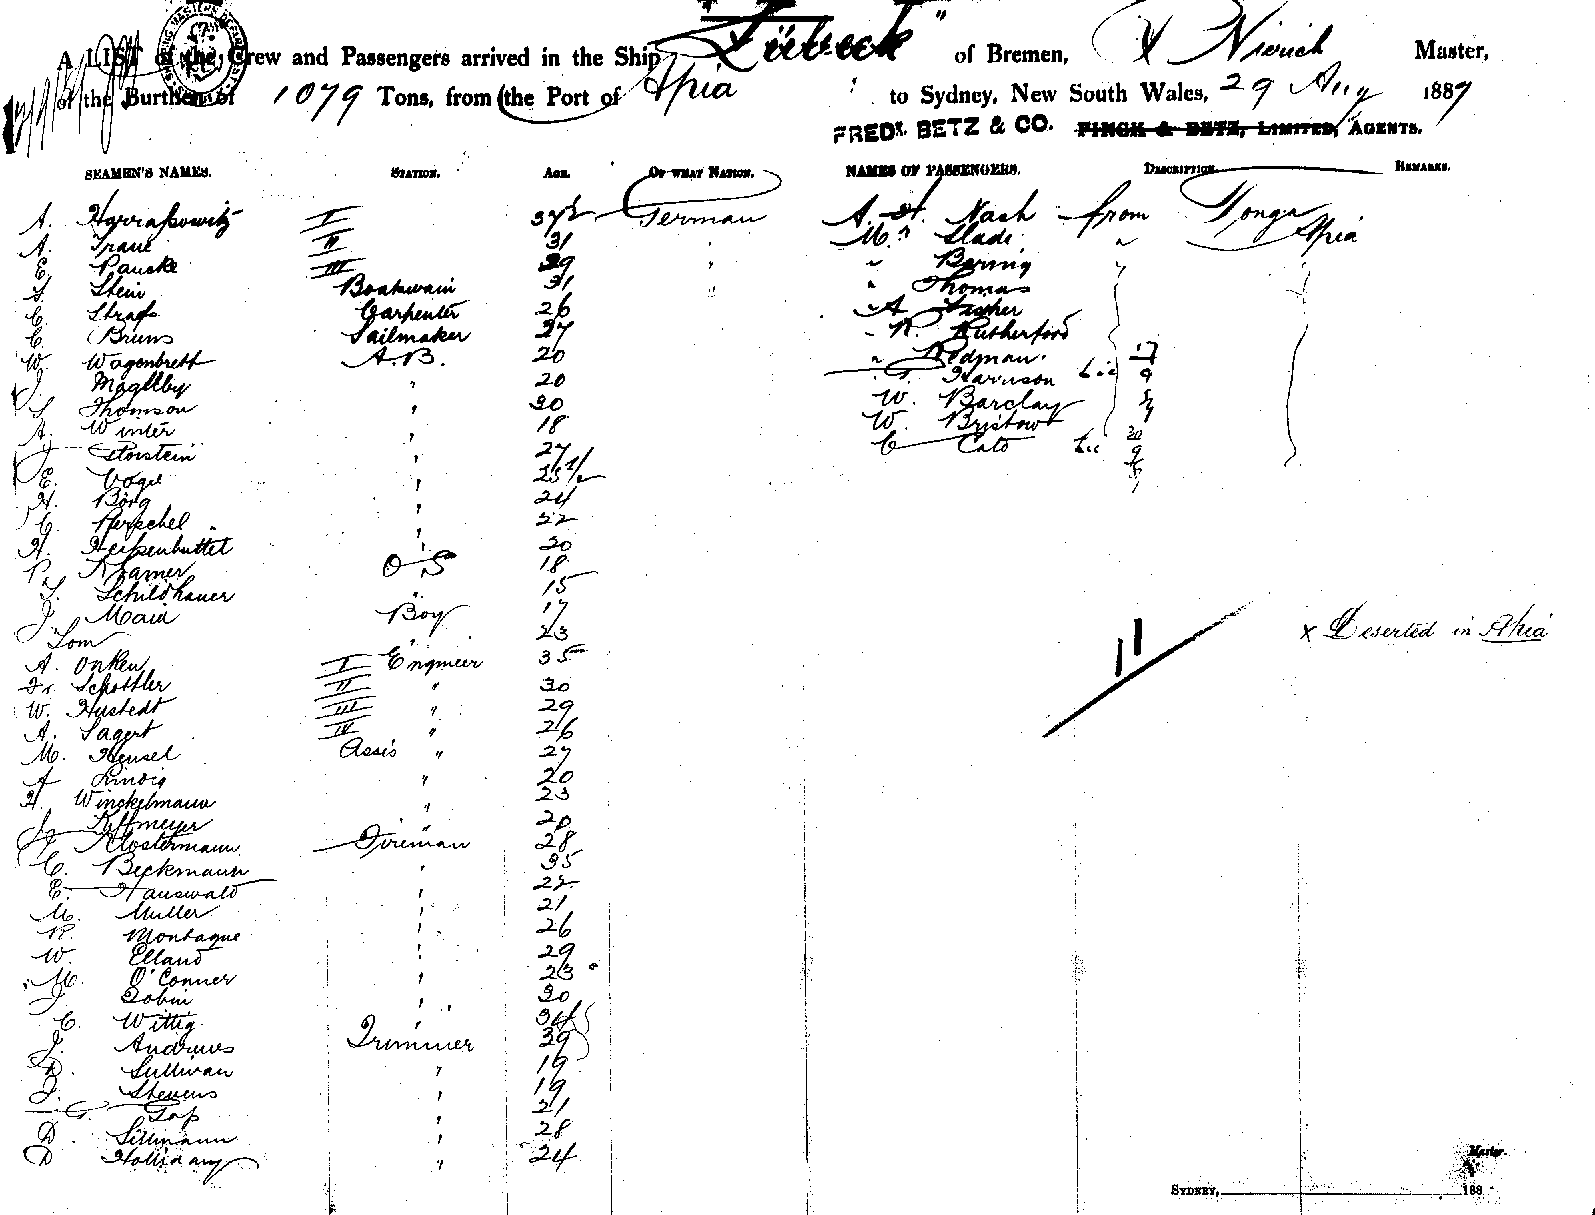 "Lübeck"
A LIST of the Crew and Passengers arrived in the Ship of Bremen, Master,
of the Burthen of 1079 Tons, from the Port of Apia to Sydney, New South Wales, 29 Aug 1887
FREDK. BETZ & CO. FINCK & BETZ, LIMITED, AGENTS.
SEAMEN'S NAMES. STATION. AGE. OF WHAT NATION. NAMES OF PASSENGERS. DESCRIPTION. REMARKS.
A. Harrassowitz I 37½ German A. H. Nash from Tonga
A. Traue II 31 " Mr. Slade " Apia
E. Pauske III 29 " " Bernig "
S. Stein Boatswain 31 " " Thomas
C. Strass Carpenter 26 " A Fisher
C. Bruns Sailmaker 27 " R. Rutherford
W. Wagenbrett A.B. 20 " Redman
J. Maglby " 20 Harrison
S. Thomson " 20 W. Barclay
A. Winter " 18 W. Bristow
J. Storstein " 27 C Cato
E. Vogel " 25½
H. Borg " 24
C. Herschel " 22
H. Heissenbuttel " 20
P. Kramer O S 18
S. Schildhauer " 15
J. Maid Boy 17
Tom 23
x Deserted in Apia
11
A. Onken I Engineer 35
Fr. Schottler II " 30
W. Hustedt III " 29
A. Sagert IV " 26
M. Hensel Assis " 27
A Lindig " 20
H. Winckelmann " 23
J. Kittmeyer " 20
J. Klostermann Fireman 28
C. Beckmann " 35
E. Hauswald " 22
M. Muller " 21
R. Montague " 26
W. Elland " 29
M. O'Conner " 23
J. Tobin " 30
C. Wittig " 34
J. Andrews Trimmer 39
D. Sullivan " 19
J. Stevens " 19
G. Tap " 21
D. Sillmann " 28
D Holliday " 24
Master.
SYDNEY, 188